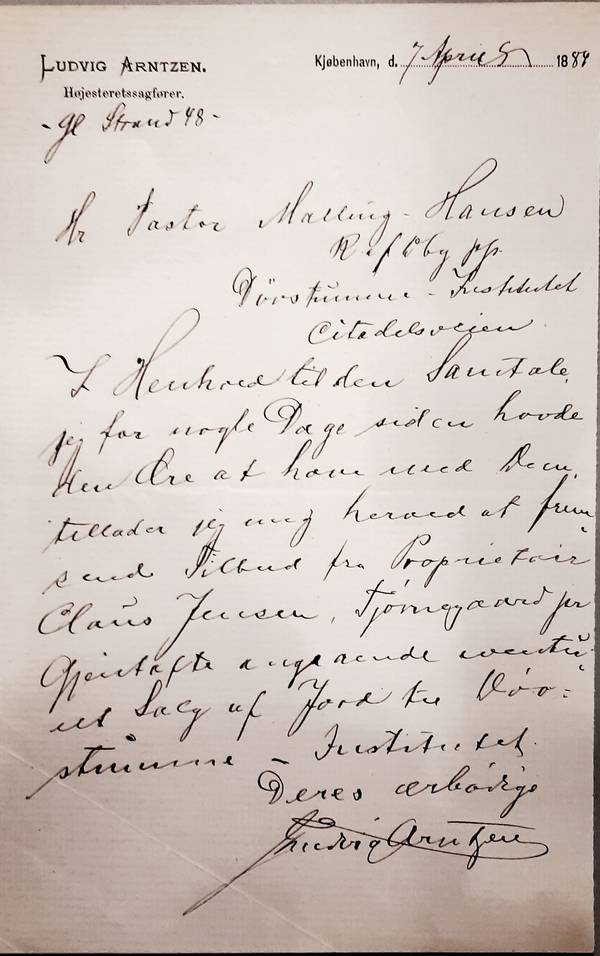 LUDVIG ARNTZEN.
Højesteretssagfører.
- Gl Strand 48 -
Kjøbenhavn, d. 7 April 1884
Hr Pastor Malling-Hansen
R af Dbg pp.
Døvstumme-Institutet
Citadelsveien.
I Henhold til den Samtale,
jeg for nogle Dage siden havde
den Ære at have med Dem,
tillader jeg mig herved at frem
sende Tilbud fra Proprietair
Claus Jensen, Tjørnegaard pr
Gjentofte angaaende eventu-
elt Salg af Jord til Døv=
stumme - Institutet.
Deres ærbødige
Ludvig Arntzen